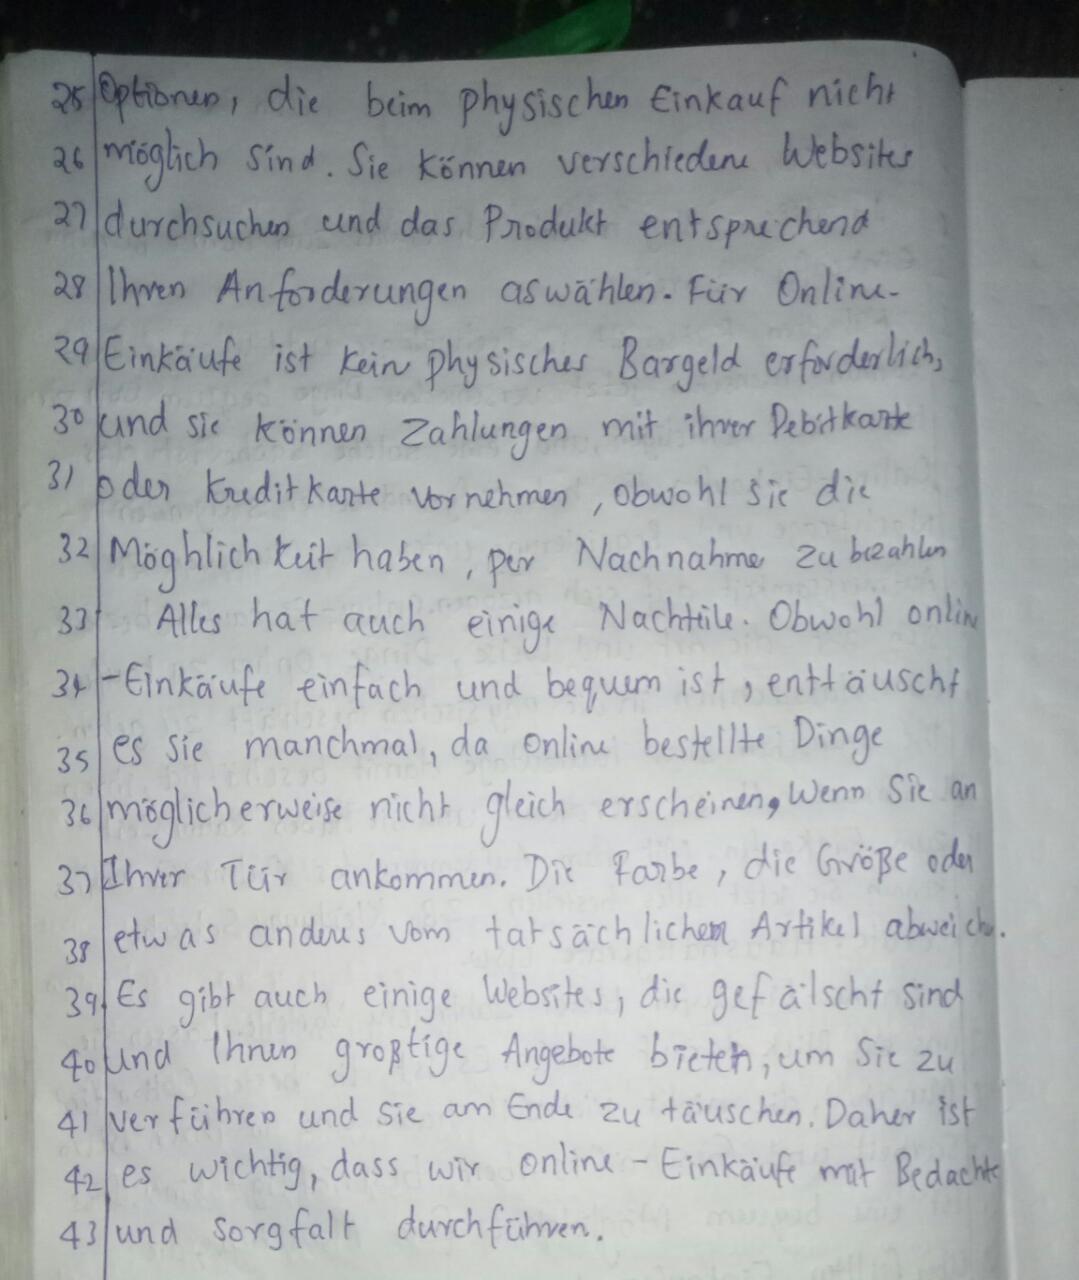 25 Optionen, die beim physischen Einkauf nicht
26 möglich sind. Sie können verschiedene Websites
27 durchsuchen und das Produkt entsprechend
28 Ihren Anforderungen aswählen. Für Online-
29 Einkäufe ist kein physisches Bargeld erforderlich,
30 und sie können Zahlungen mit ihrer Debitkarte
31 oder Kreditkarte vornehmen, obwohl sie die
32 Möghlichkeit haben, per Nachnahme zu bezahlen
33 Alles hat auch einige Nachteile. Obwohl online
34 -Einkäufe einfach und bequem ist, enttäuscht
35 es sie manchmal, da online bestellte Dinge
36 möglicherweise nicht gleich erscheinen, wenn Sie an
37 Ihrer Tür ankommen. Die Farbe, die Größe oder
38 etwas anderes vom tatsächlichem Artikel abweichen.
39 Es gibt auch einige Websites, die gefälscht sind
40 und Ihnen großtige Angebote bieten, um Sie zu
41 verführen und sie am Ende zu täuschen. Daher ist
42 es wichtig, dass wir online-Einkäufe mit Bedachte
43 und sorgfalt durchführen.